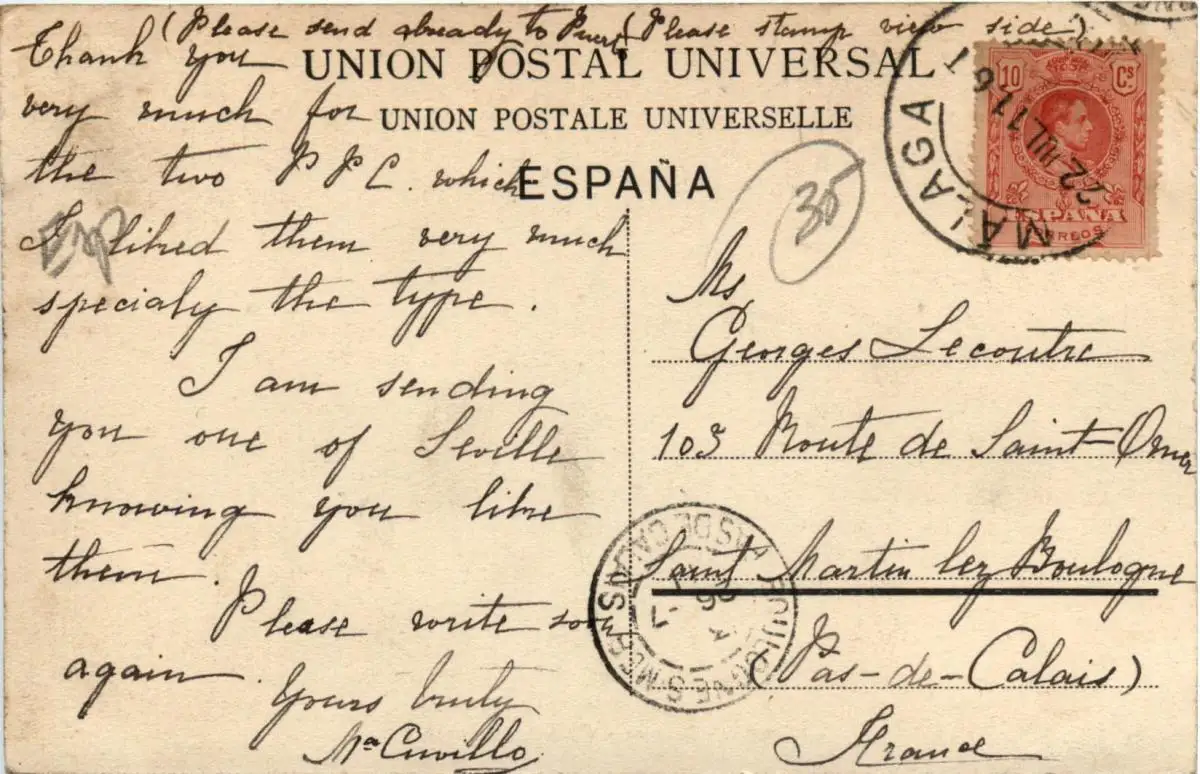 (Please send already to Puert (Please stamp view side)
Thank you
very much for
the two P P C. which
I liked them very much
specialy the type.
I am sending
you one of Seville
knowing you like
them.
Please write soon
again.
Yours truly
Mª Cuvillo
UNION POSTAL UNIVERSAL
UNION POSTALE UNIVERSELLE
ESPAÑA
35
Exp
10 Cs
ESPAÑA
CORREOS
MALAGA
22 JUL 11
Ms
Georges Lecoutre
103 Route de Saint-Omer
Saint Martin lez Boulogne
(Pas-de-Calais)
France
BOULOGNE S MER
PAS DE CALAIS
26 - 7